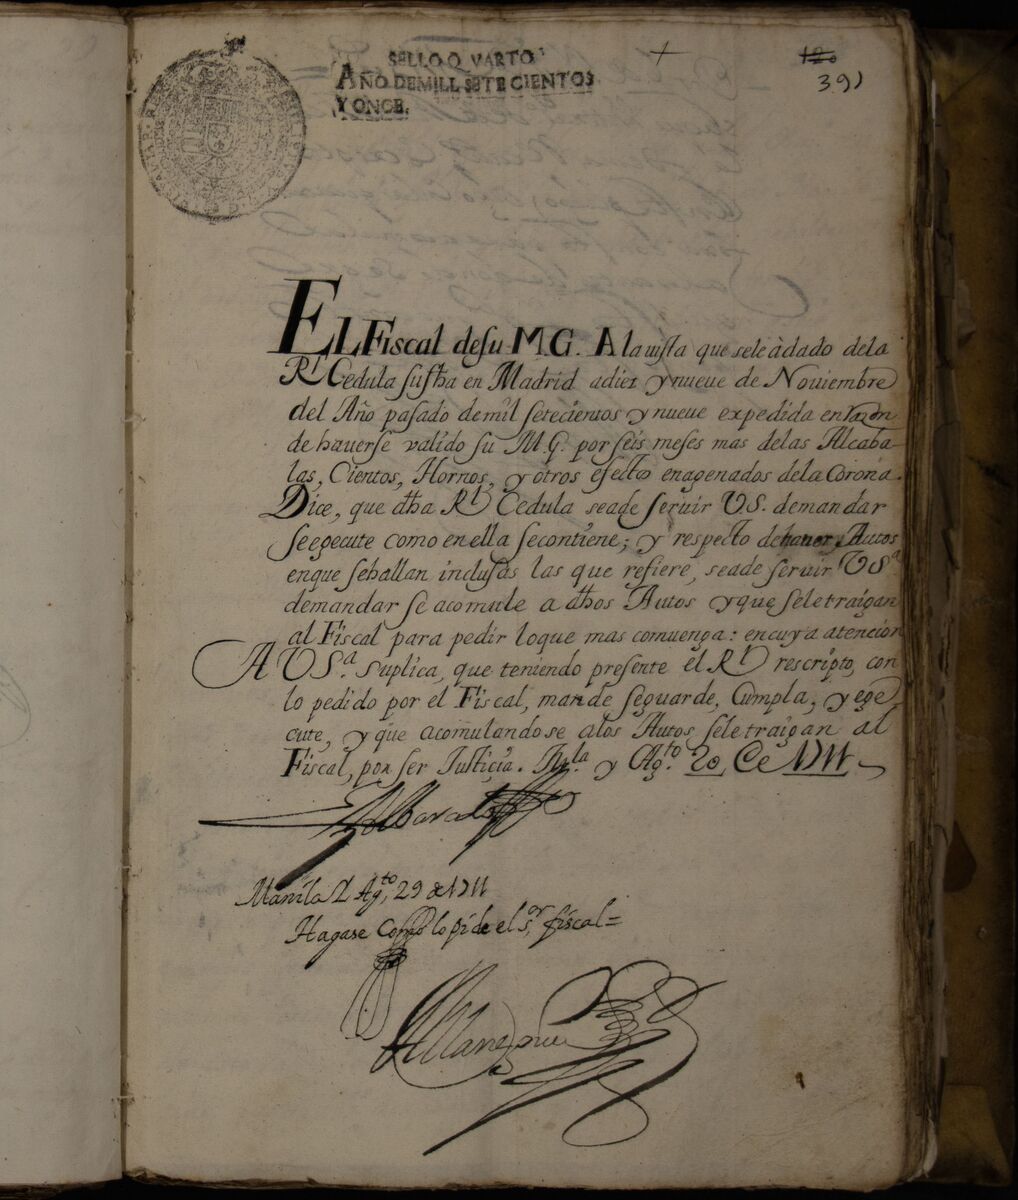 SELLO Q VARTO
AÑO DE MILL SETECIENTOS
Y ONCE.
120
391
EL Fiscal desu M.G. A la uista que sele à dado dela
Rl Cedula su fha en Madrid a diez y nueue de Nouiembre
del Año pasado de mil setecientos y nueue expedida en razon
de hauerse valido su M.G. por seis meses mas delas Alcaba-
las, Cientos, Hornos, y otros efectos enagenados dela Corona.
Dice, que dha Rl Cedula seade seruir VS. demandar
se egecute como en ella secontiene; y respecto de hauer Autos
en que se hallan inclusas las que refiere, seade seruir VSa
demandar se acomule a dhos Autos y que sele traigan
al Fiscal para pedir loque mas conuenga: en cuya atencion
A VSa suplica, que teniendo presente el Rl rescripto, con
lo pedido por el Fiscal, mande seguarde, Cumpla, y ege
cute, y que acomulandose alos Autos sele traigan al
Fiscal, por ser Justicia. y Agto 20 de 1711
Manila Agto 29 de 1711
Hagase Como lo pide el sor fiscal=